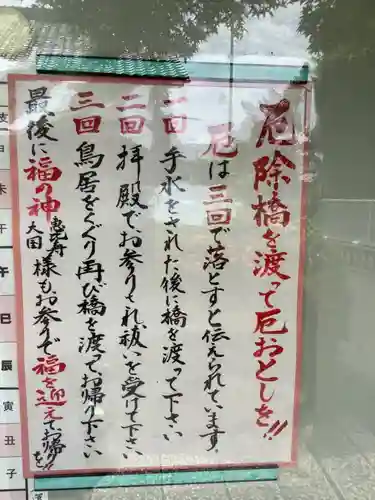 厄除橋を渡って厄おとしを!!
厄は三回で落とすと伝えられています。
一回 手水をされた後に橋を渡って下さい
二回 拝殿でお参りされ、祓いを受けて下さい
三回 鳥居をくぐり再び橋を渡ってお帰り下さい
最後に福の神 恵比寿 大国 様もお参りで福を迎えてお帰りを!!
未
午
巳
辰
寅
丑
子